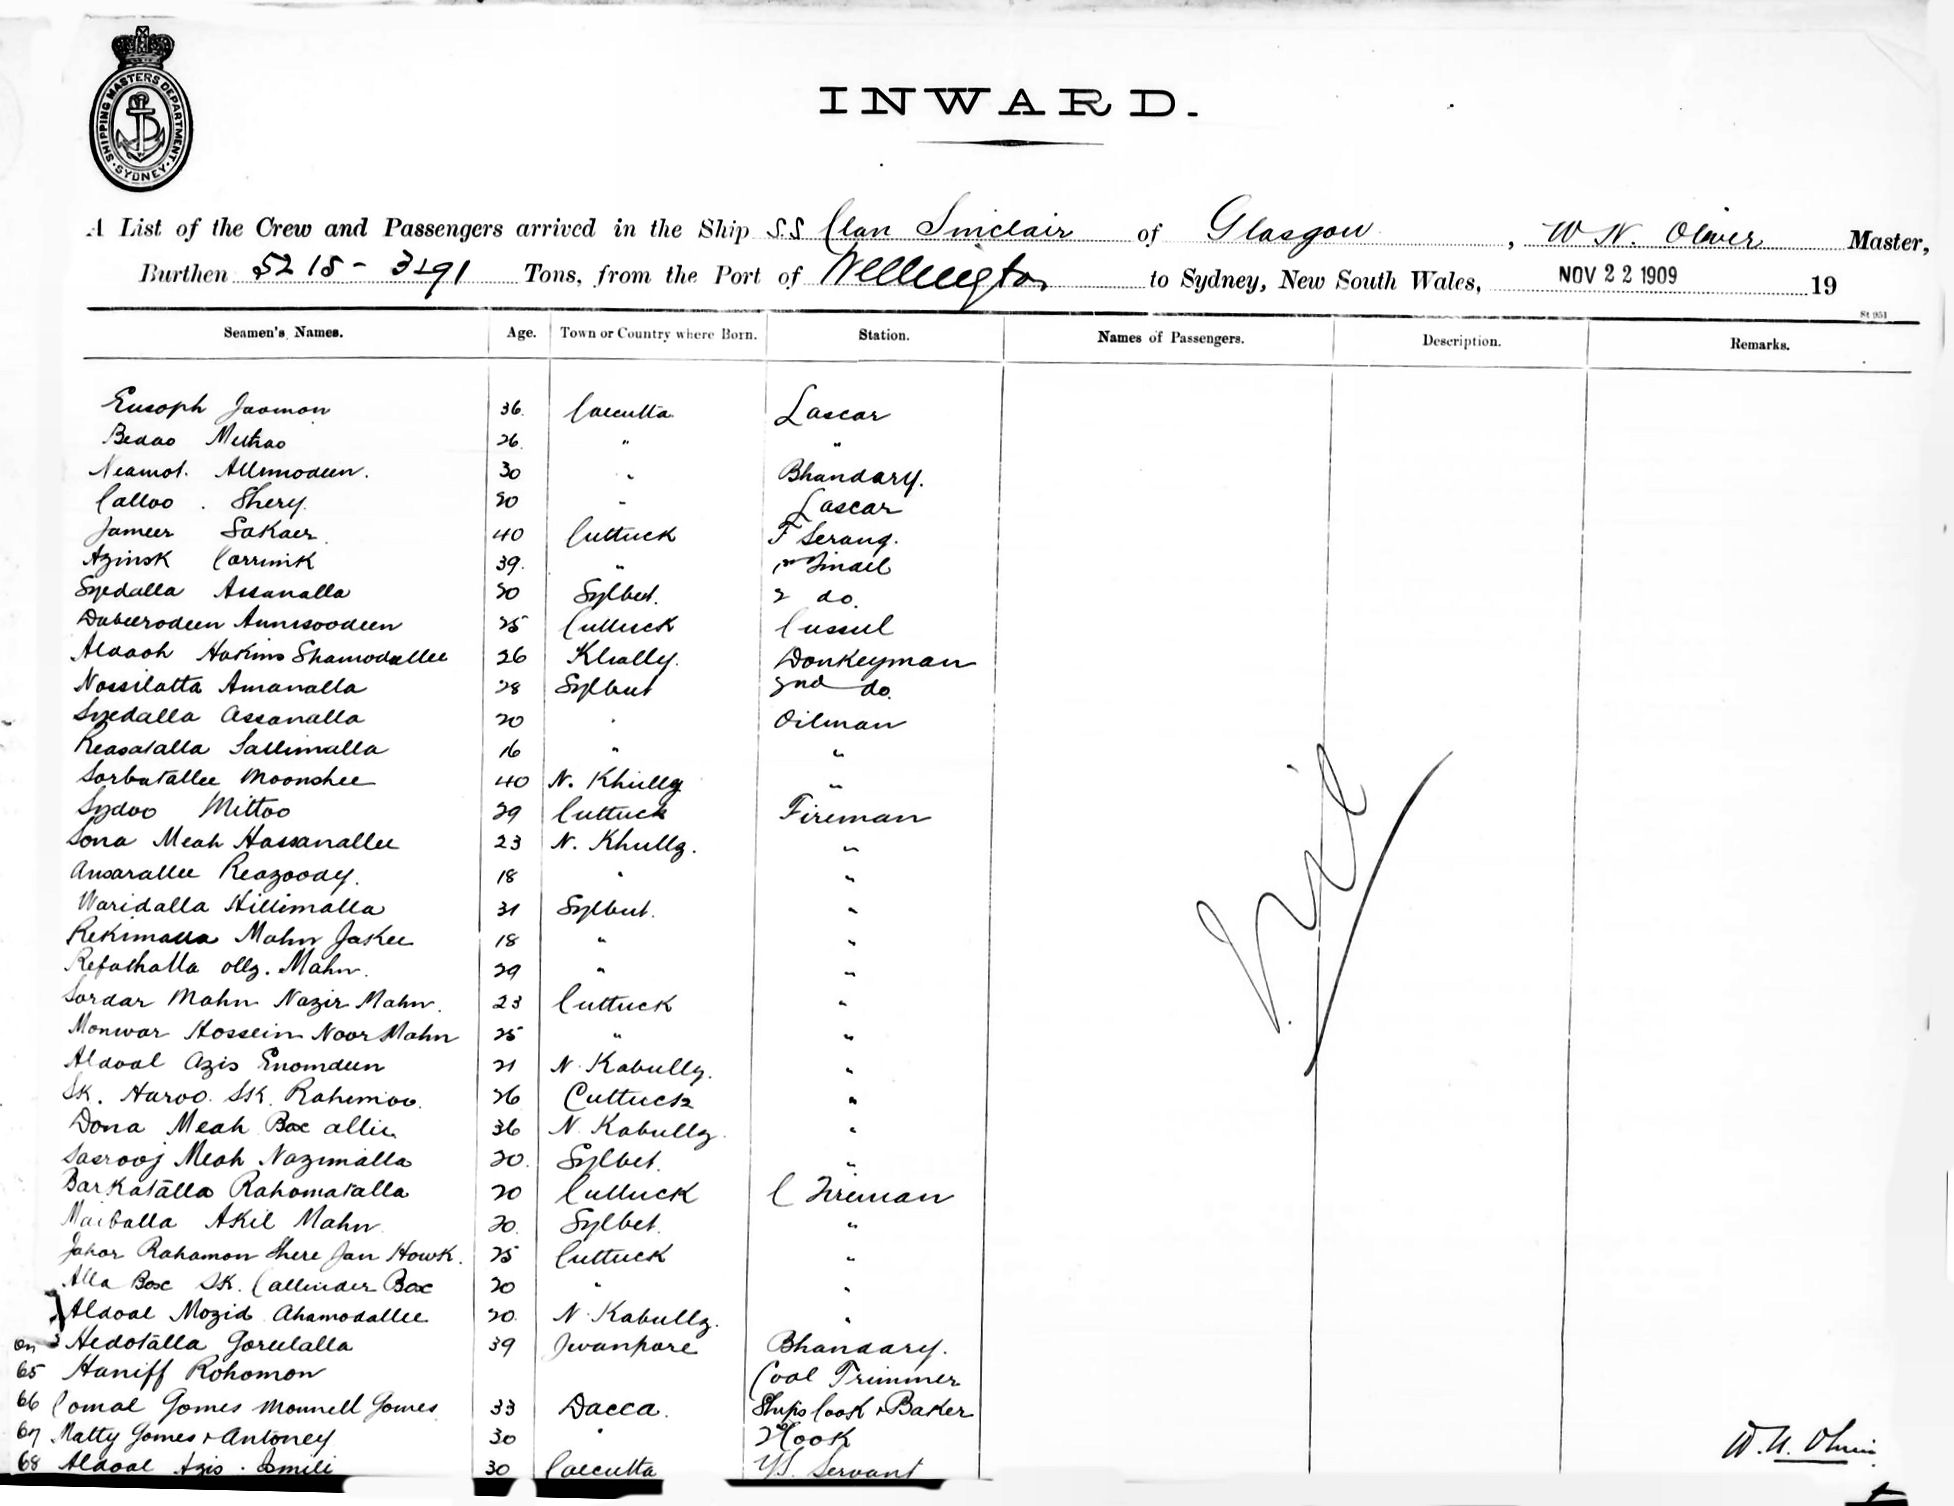 SHIPPING MASTERS DEPARTMENT
SYDNEY
INWARD.
A List of the Crew and Passengers arrived in the Ship S.S Clan Sinclair of Glasgow, W N. Oliver Master,
Burthen 5215 - 3291 Tons, from the Port of Wellington to Sydney, New South Wales, NOV 22 1909 19
St 951
Seamen's Names. Age. Town or Country where Born. Station. Names of Passengers. Description. Remarks.
Eusoph Jaomon 36. Calcutta Lascar
Bedao Mutrao 26. " "
Neamot. Allimodeen. 30 " Bhandary.
Calloo . Shery. 20 " Lascar
Jameer Sakaer. 40 Cuttuck F Serang.
Azimok Carrimk 39. " 1st Tindil
Syedalla Assanalla 20 Sylhet. 2 do.
Dabeerodeen Aunisoodeen 25 Cuttuck Cussul
Aldaoh Hakims Shamodallee 26 Khally. Donkeyman
Nossilatta Amanalla 28 Sylhet 2nd do.
Syedalla Assanalla 20 " Oilman
Reasatalla Sallimalla 16 " "
Sorbutallee Moonshee 40 N. Khully "
Sydoo Mittoo 29 Cuttuck Fireman
Sona Meah Hassanallee 23 N. Khully. "
Ansarallee Reazoody. 18 " "
Waridalla Hillimalla 31 Sylhet. "
Rekimalla Mahn Jakee 18 " "
Refathalla olly. Mahn. 29 " "
Sordar Mahn Nazir Mahn. 23 Cuttuck "
Monwar Hossein Noor Mahn 25 " "
Aldoal Azis Enomdeen 21 N. Kabully. "
Sk. Haroo. Sk. Rahimoo. 26 Cuttuck "
Dona Meah Box allie 36 N. Kabully. "
Sasrooj Meah Nazimalla 20. Sylhet. "
Barkatalla Rahomatalla 20 Cuttuck C Fireman
Maiballa Akil Mahn 20. Sylhet. "
Jahor Rahamon Shere Jan Howk. 25 Cuttuck "
Alla Box Sk. Callinder Box 20 " "
Aldoal Mozid Ahamodallee 20. N. Kabully. "
Aedotalla Gorulalla 39 Jwanpore Bhandary.
65 Haniff Rohomon Coal Trimmer
66 Comal Gomes Monnell Gomes 33 Dacca. Ships Cook & Baker
67 Matty Gomes & Antoney 30 " 2nd Cook
68 Aldoal Azis . Ismili 30 Calcutta Servant
Nil
W. N. Oliver